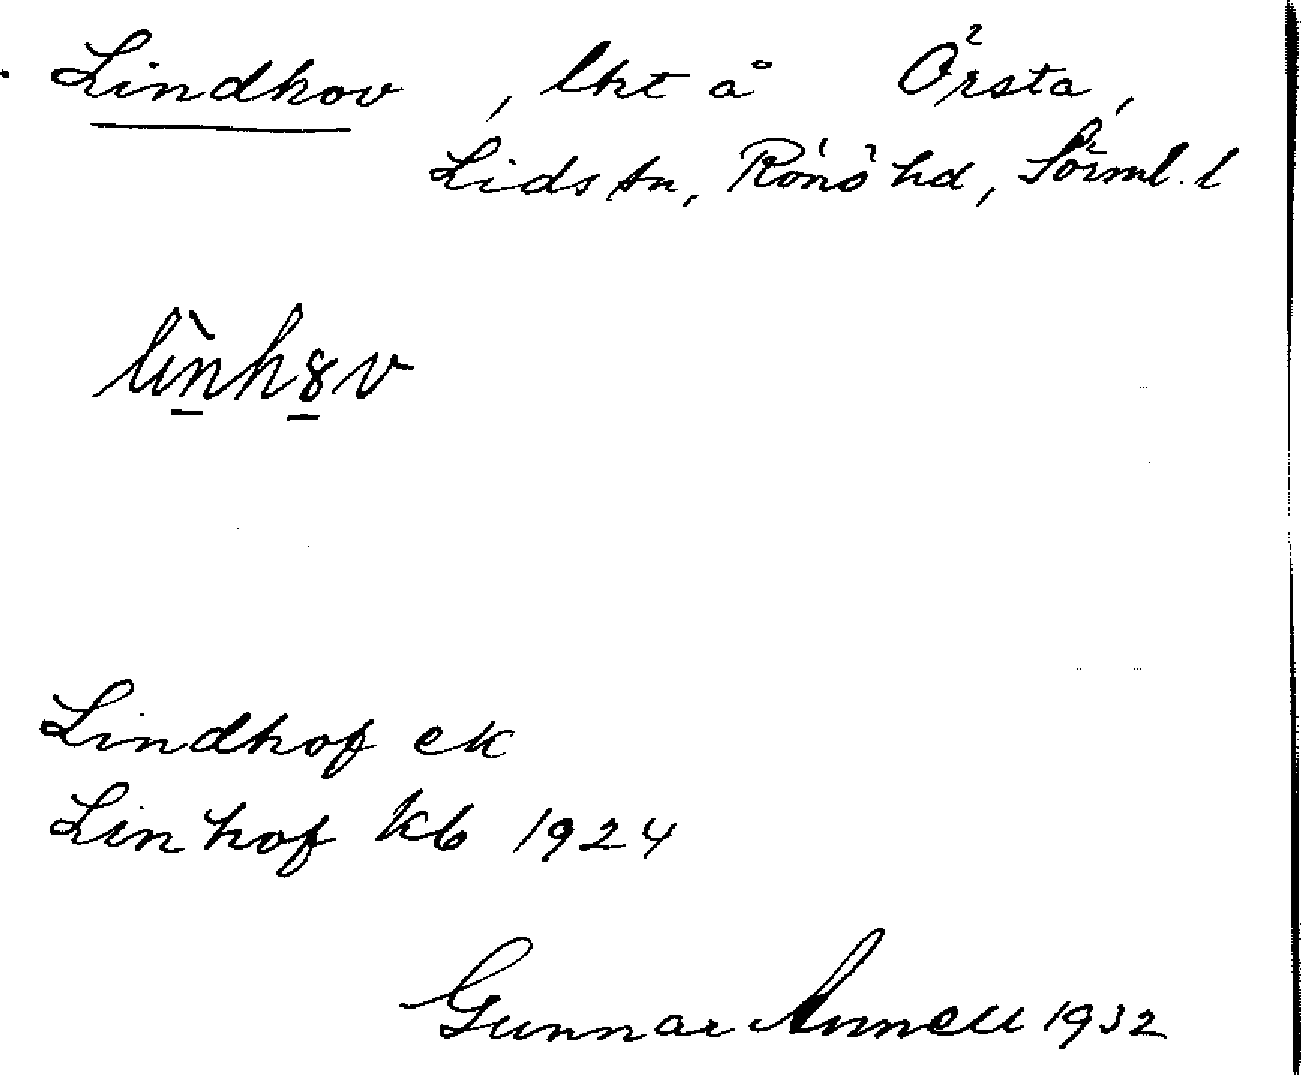 Lindhov, lht å Örsta,
Lids sn, Rönö hd, Sörml. l
lình8v
Lindhof ek
Linhof kb 1924
Gunnar Annell 1932